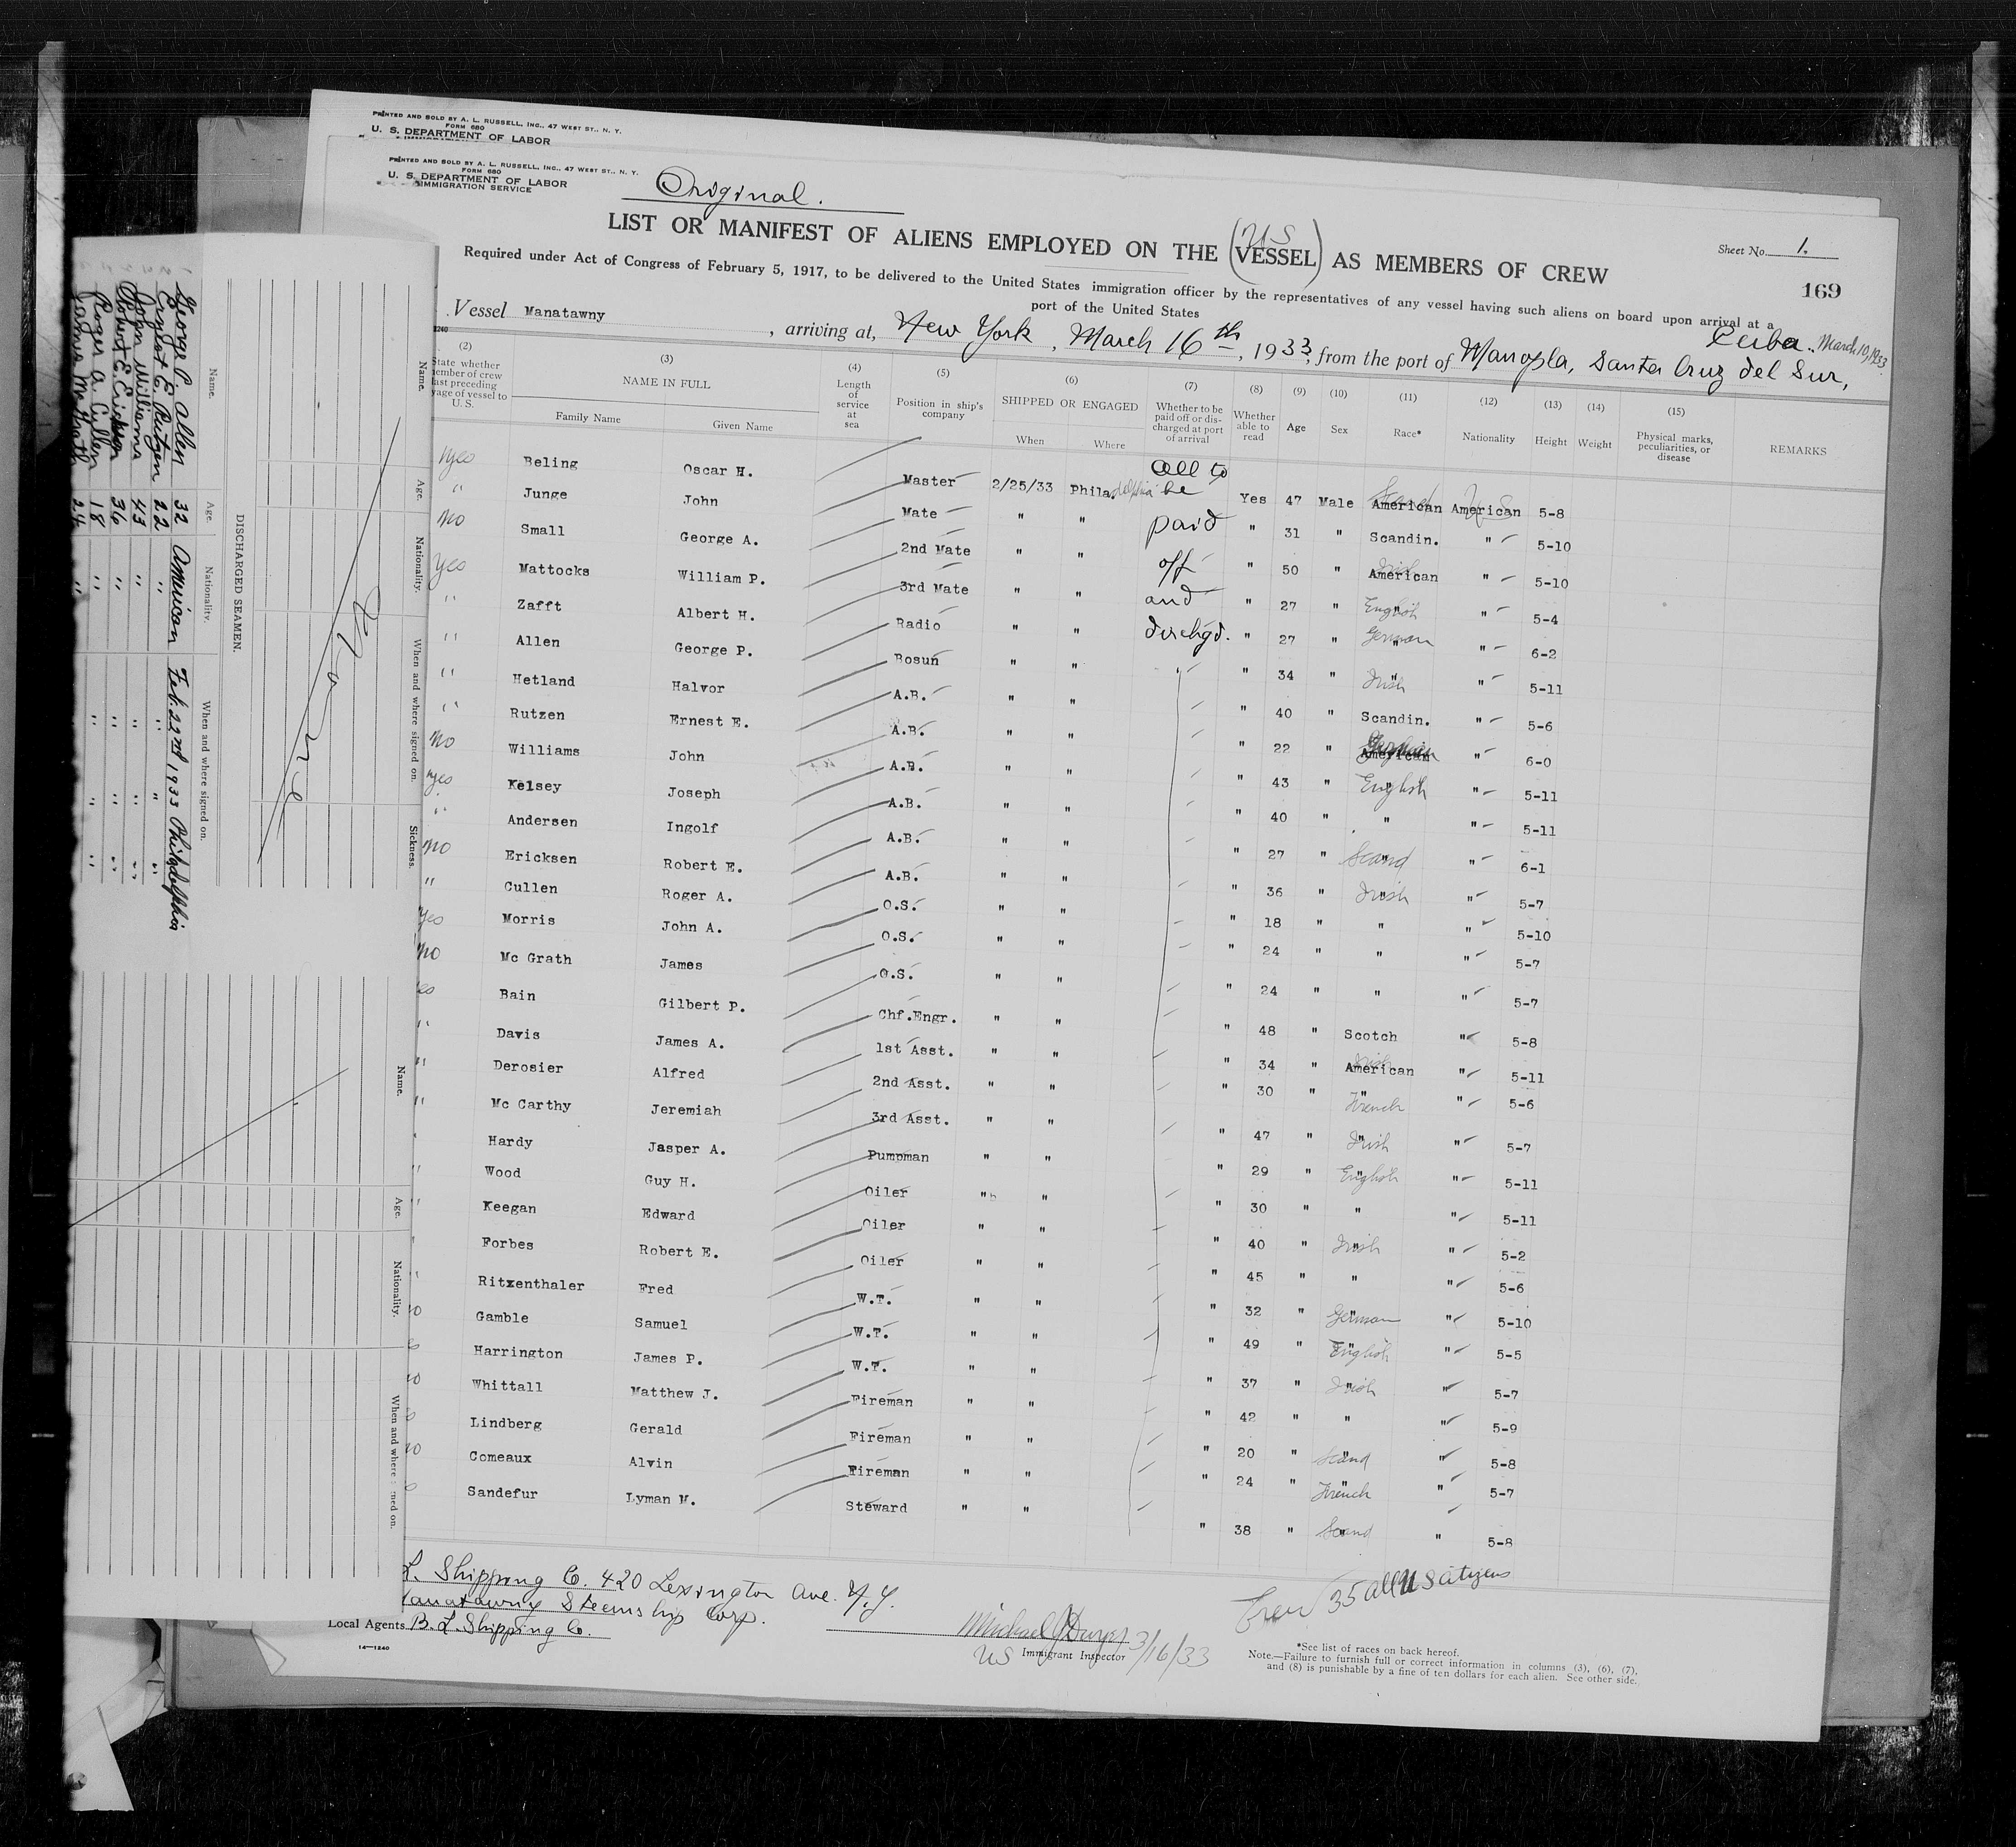 PRINTED AND SOLD BY A. L. RUSSELL, INC., 47 WEST ST., N. Y.
FORM 680
U. S. DEPARTMENT OF LABOR
PRINTED AND SOLD BY A. L. RUSSELL, INC., 47 WEST ST., N. Y.
FORM 680
U. S. DEPARTMENT OF LABOR
IMMIGRATION SERVICE
Original.
US
LIST OR MANIFEST OF ALIENS EMPLOYED ON THE (VESSEL) AS MEMBERS OF CREW
Sheet No. 1.
169
Required under Act of Congress of February 5, 1917, to be delivered to the United States immigration officer by the representatives of any vessel having such aliens on board upon arrival at a
port of the United States
Vessel Manatawny, arriving at, New York, March 16th, 1933, from the port of Manopla, Santa Cruz del Sur, Cuba. March 10, 1933
(2) (3) (4) (5) (6) (7) (8) (9) (10) (11) (12) (13) (14) (15)
State whether member of crew last preceding voyage of vessel to U.S. NAME IN FULL Family Name Given Name Length of service at sea Position in ship's company SHIPPED OR ENGAGED When Where Whether to be paid off or discharged at port of arrival Whether able to read Age Sex Race* Nationality Height Weight Physical marks, peculiarities, or disease REMARKS
All to be paid off and dischgd.
yes Beling Oscar H. Master 2/25/33 Philadelphia Yes 47 Male Scand American American US 5-8
" Junge John Mate " " " 31 " Scandin. " 5-10
no Small George A. 2nd Mate " " " 50 " Irish American " 5-10
yes Mattocks William P. 3rd Mate " " " 27 " English " " 5-4
" Zafft Albert H. Radio " " " 27 " German " " 6-2
" Allen George P. Bosun " " " 34 " Irish " " 5-11
" Hetland Halvor A.B. " " " 40 " Scandin. " 5-6
" Rutzen Ernest E. A.B. " " " 22 " American " 6-0
no Williams John A.B. " " " 43 " English " " 5-11
yes Kelsey Joseph A.B. " " " 40 " " " 5-11
" Andersen Ingolf A.B. " " " 27 " Scand " " 6-1
no Ericksen Robert E. A.B. " " " 36 " Irish " " 5-7
" Cullen Roger A. O.S. " " " 18 " " " 5-10
yes Morris John A. O.S. " " " 24 " " " 5-7
no Mc Grath James O.S. " " " 24 " " " 5-7
es Bain Gilbert P. Chf.Engr. " " " 48 " Scotch " 5-8
" Davis James A. 1st Asst. " " " 34 " Irish American " 5-11
" Derosier Alfred 2nd Asst. " " " 30 " French " " 5-6
" Mc Carthy Jeremiah 3rd Asst. " " " 47 " Irish " " 5-7
" Hardy Jasper A. Pumpman " " " 29 " English " " 5-11
" Wood Guy H. Oiler " " " 30 " " " 5-11
" Keegan Edward Oiler " " " 40 " Irish " " 5-2
" Forbes Robert E. Oiler " " " 45 " " " 5-6
" Ritxenthaler Fred W.T. " " " 32 " German " " 5-10
o Gamble Samuel W.T. " " " 49 " English " " 5-5
Harrington James P. W.T. " " " 37 " Irish " " 5-7
o Whittall Matthew J. Fireman " " " 42 " " " 5-9
Lindberg Gerald Fireman " " " 20 " Scand " " 5-8
o Comeaux Alvin Fireman " " " 24 " French " " 5-7
Sandefur Lyman M. Steward " " " 38 " Scand " " 5-8
L. Shipping Co. 420 Lexington Ave. N.Y.
Manatawny Steemship Corp.
Local Agents B. L. Shipping Co.
14—1240
Crew 35 all US citizens
Michael J Dwyer 3/16/33
US Immigrant Inspector
*See list of races on back hereof.
Note.—Failure to furnish full or correct information in columns (3), (6), (7),
and (8) is punishable by a fine of ten dollars for each alien. See other side.
DISCHARGED SEAMEN.
Name. Age. Nationality. When and where signed on.
George P. Allen 32 American Feb. 22nd 1933 Philadelphia
Ernest E. Rutzen 22 " " "
John Williams 43 " " "
Robert E. Erickson 36 " " "
Roger A. Cullen 18 " " "
James McGrath 24 "
Name. Age. Nationality. When and where signed on. Sickness.
None
Name. Age. Nationality. When and where signed on.